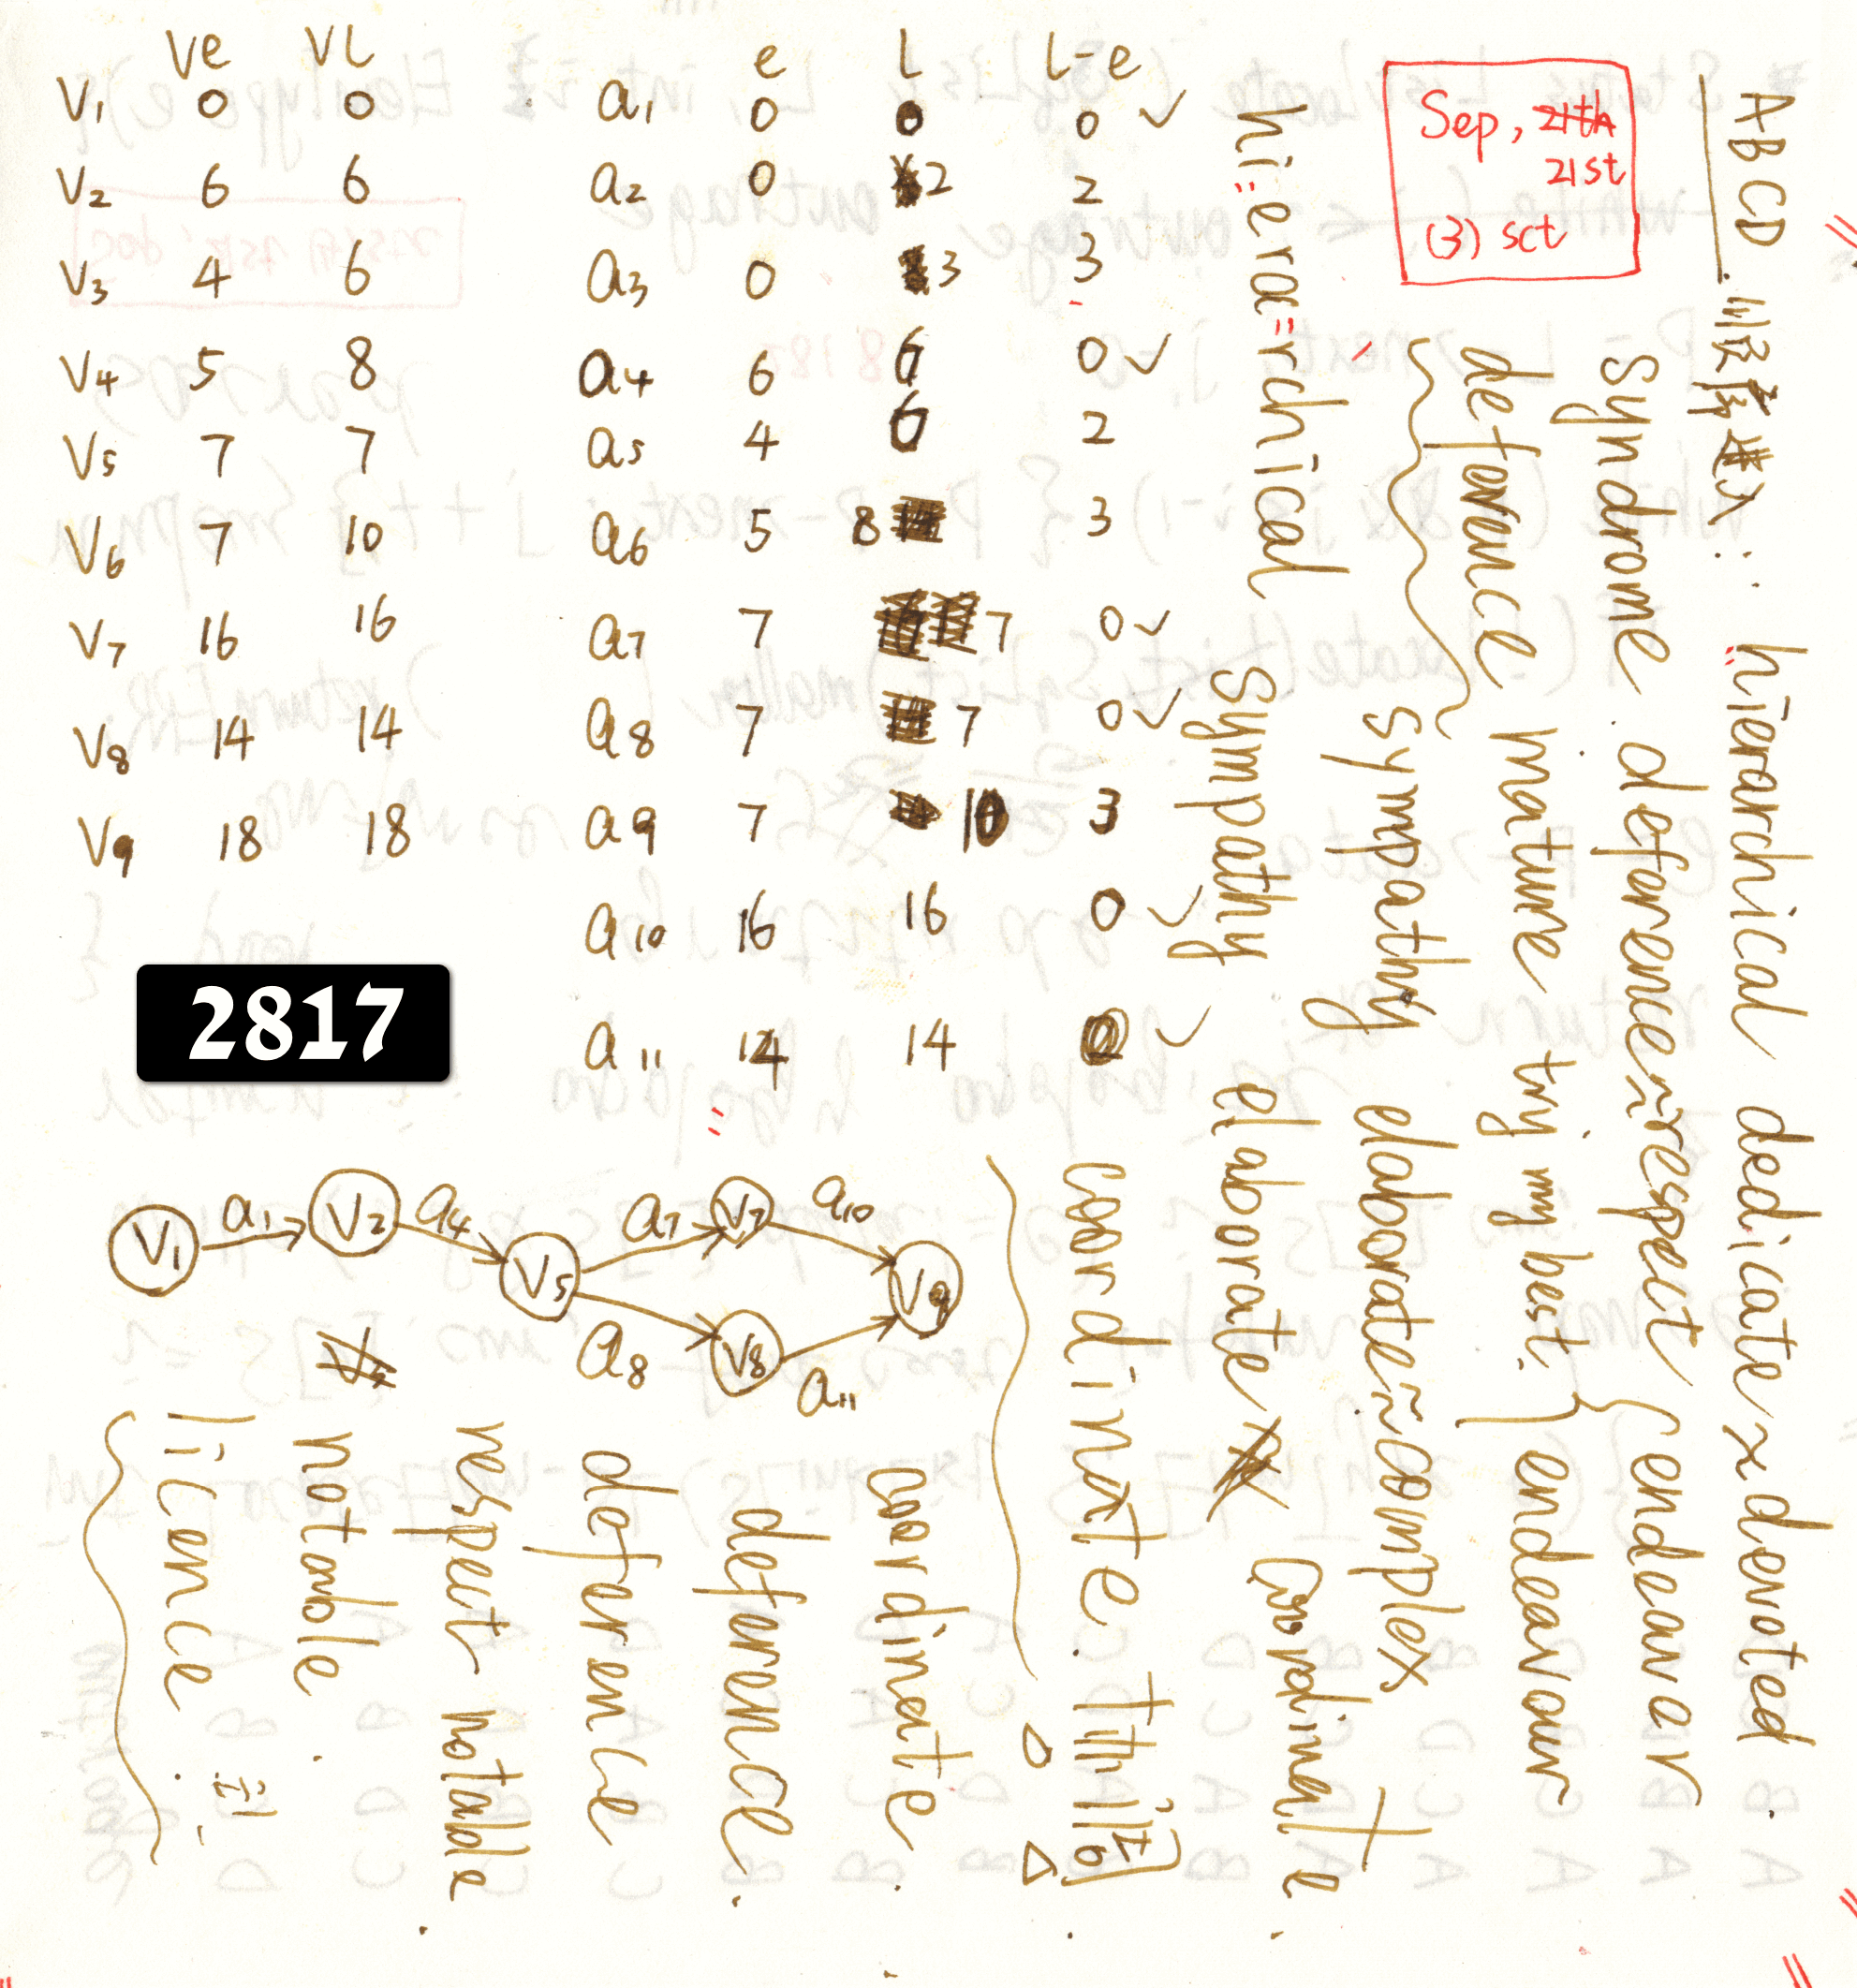 Ve VL
V1 0 0
V2 6 6
V3 4 6
V4 5 8
V5 7 7
V6 7 10
V7 16 16
V8 14 14
V9 18 18
e l l-e
a1 0 0 0 ✓
a2 0 2 2
a3 0 3 3
a4 6 6 0 ✓
a5 4 6 2
a6 5 8 3
a7 7 7 0 ✓
a8 7 7 0 ✓
a9 7 10 3
a10 16 16 0 ✓
a11 14 14 0 ✓
2817
V1 a1 V2 a4 V5 a7 V7 a10 V9
a8 V8 a11
Sep, 21th
21st
(3) sct
ABCD
hierarchical dedicate ≈ devoted.
syndrome. deference ≈ respect { endeavor
deference mature try my best. } endeavour
sympathy elaborate ≈ complex
hi=era=rchical sympathy elaborate coordinate
coordinate.
coordinate.
deference.
deference
respect notable.
notable.
licence.